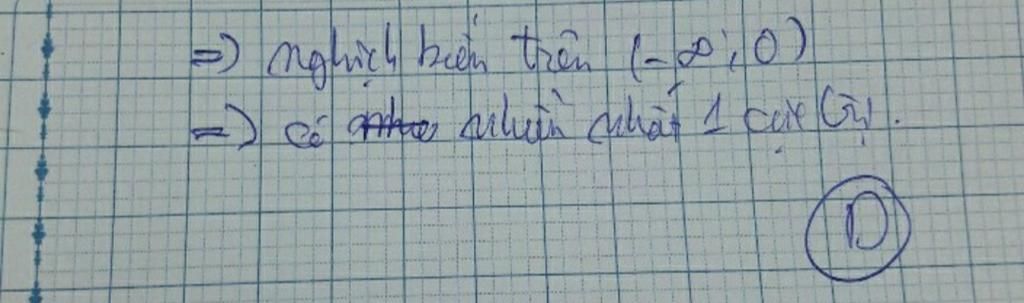 => nghịch biến trên (-∞; 0)
=> có nhiều nhất 1 cực trị.
D